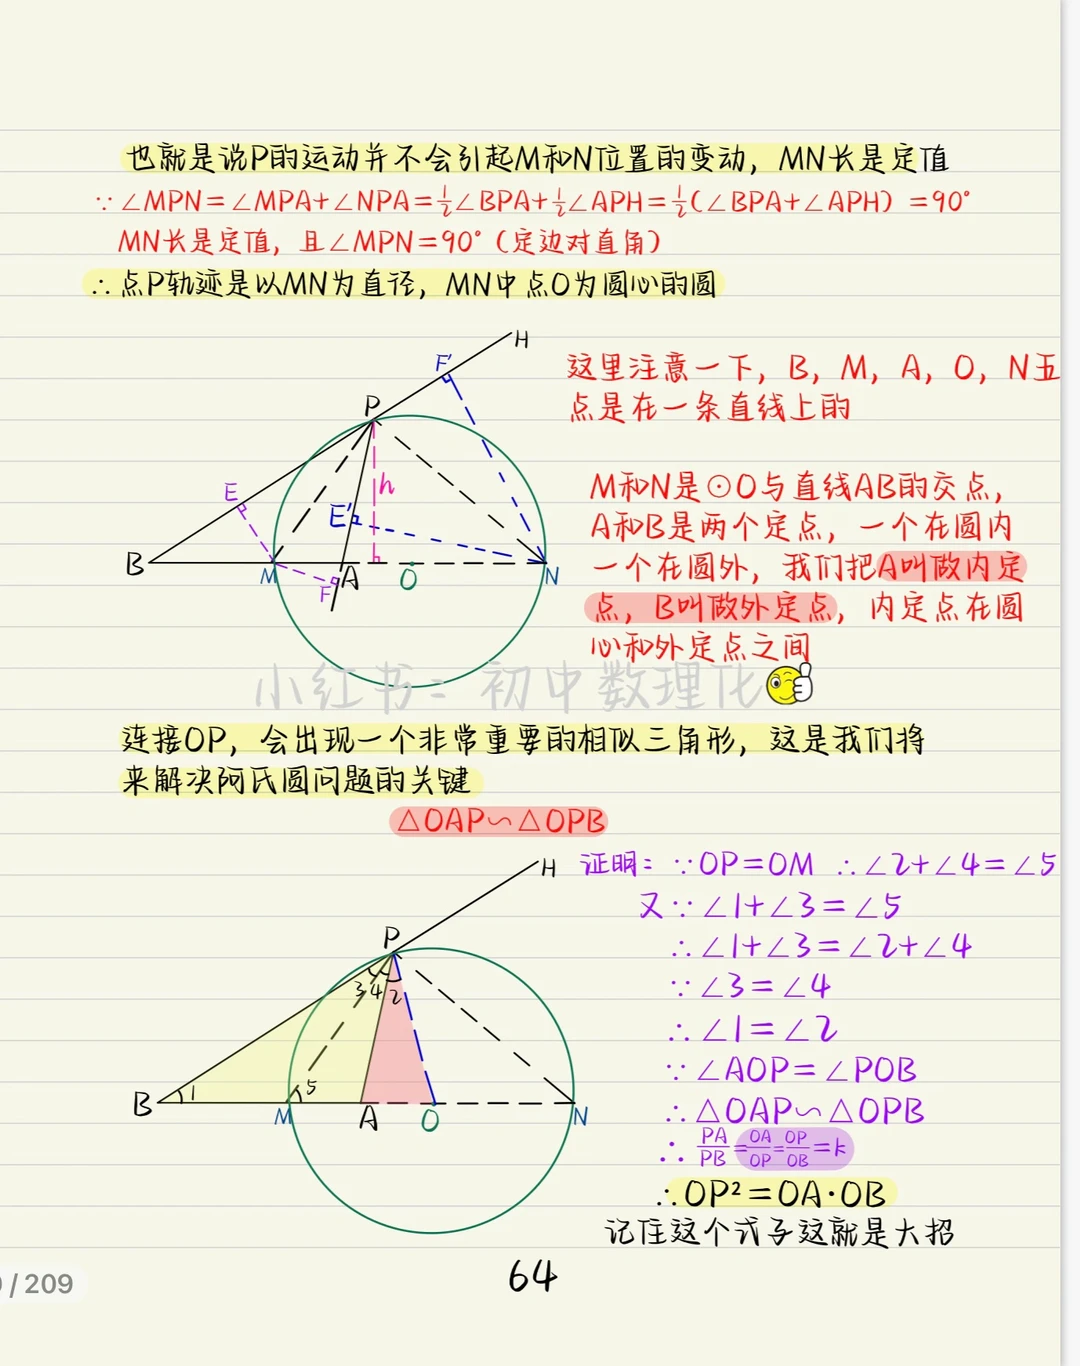 也就是说P的运动并不会引起M和N位置的变动，MN长是定值
∵∠MPN=∠MPA+∠NPA=½∠BPA+½∠APH=½(∠BPA+∠APH）=90°
MN长是定值，且∠MPN=90°（定边对直角）
∴点P轨迹是以MN为直径，MN中点O为圆心的圆
H
F'
P
E
h
E'
B
M
F
A
O
N
这里注意一下，B，M，A，O，N五
点是在一条直线上的
M和N是⊙O与直线AB的交点，
A和B是两个定点，一个在圆内
一个在圆外，我们把A叫做内定
点，B叫做外定点，内定点在圆
心和外定点之间
小红书：初中数理化
连接OP，会出现一个非常重要的相似三角形，这是我们将
来解决阿氏圆问题的关键
△OAP∽△OPB
H
P
3 4 2
B
1
M
5
A
O
N
证明：∵OP=OM ∴∠2+∠4=∠5
又∵∠1+∠3=∠5
∴∠1+∠3=∠2+∠4
∵∠3=∠4
∴∠1=∠2
∵∠AOP=∠POB
∴△OAP∽△OPB
∴PA/PB=OA/OP=OP/OB=k
∴OP²=OA·OB
记住这个式子这就是大招
64
/ 209